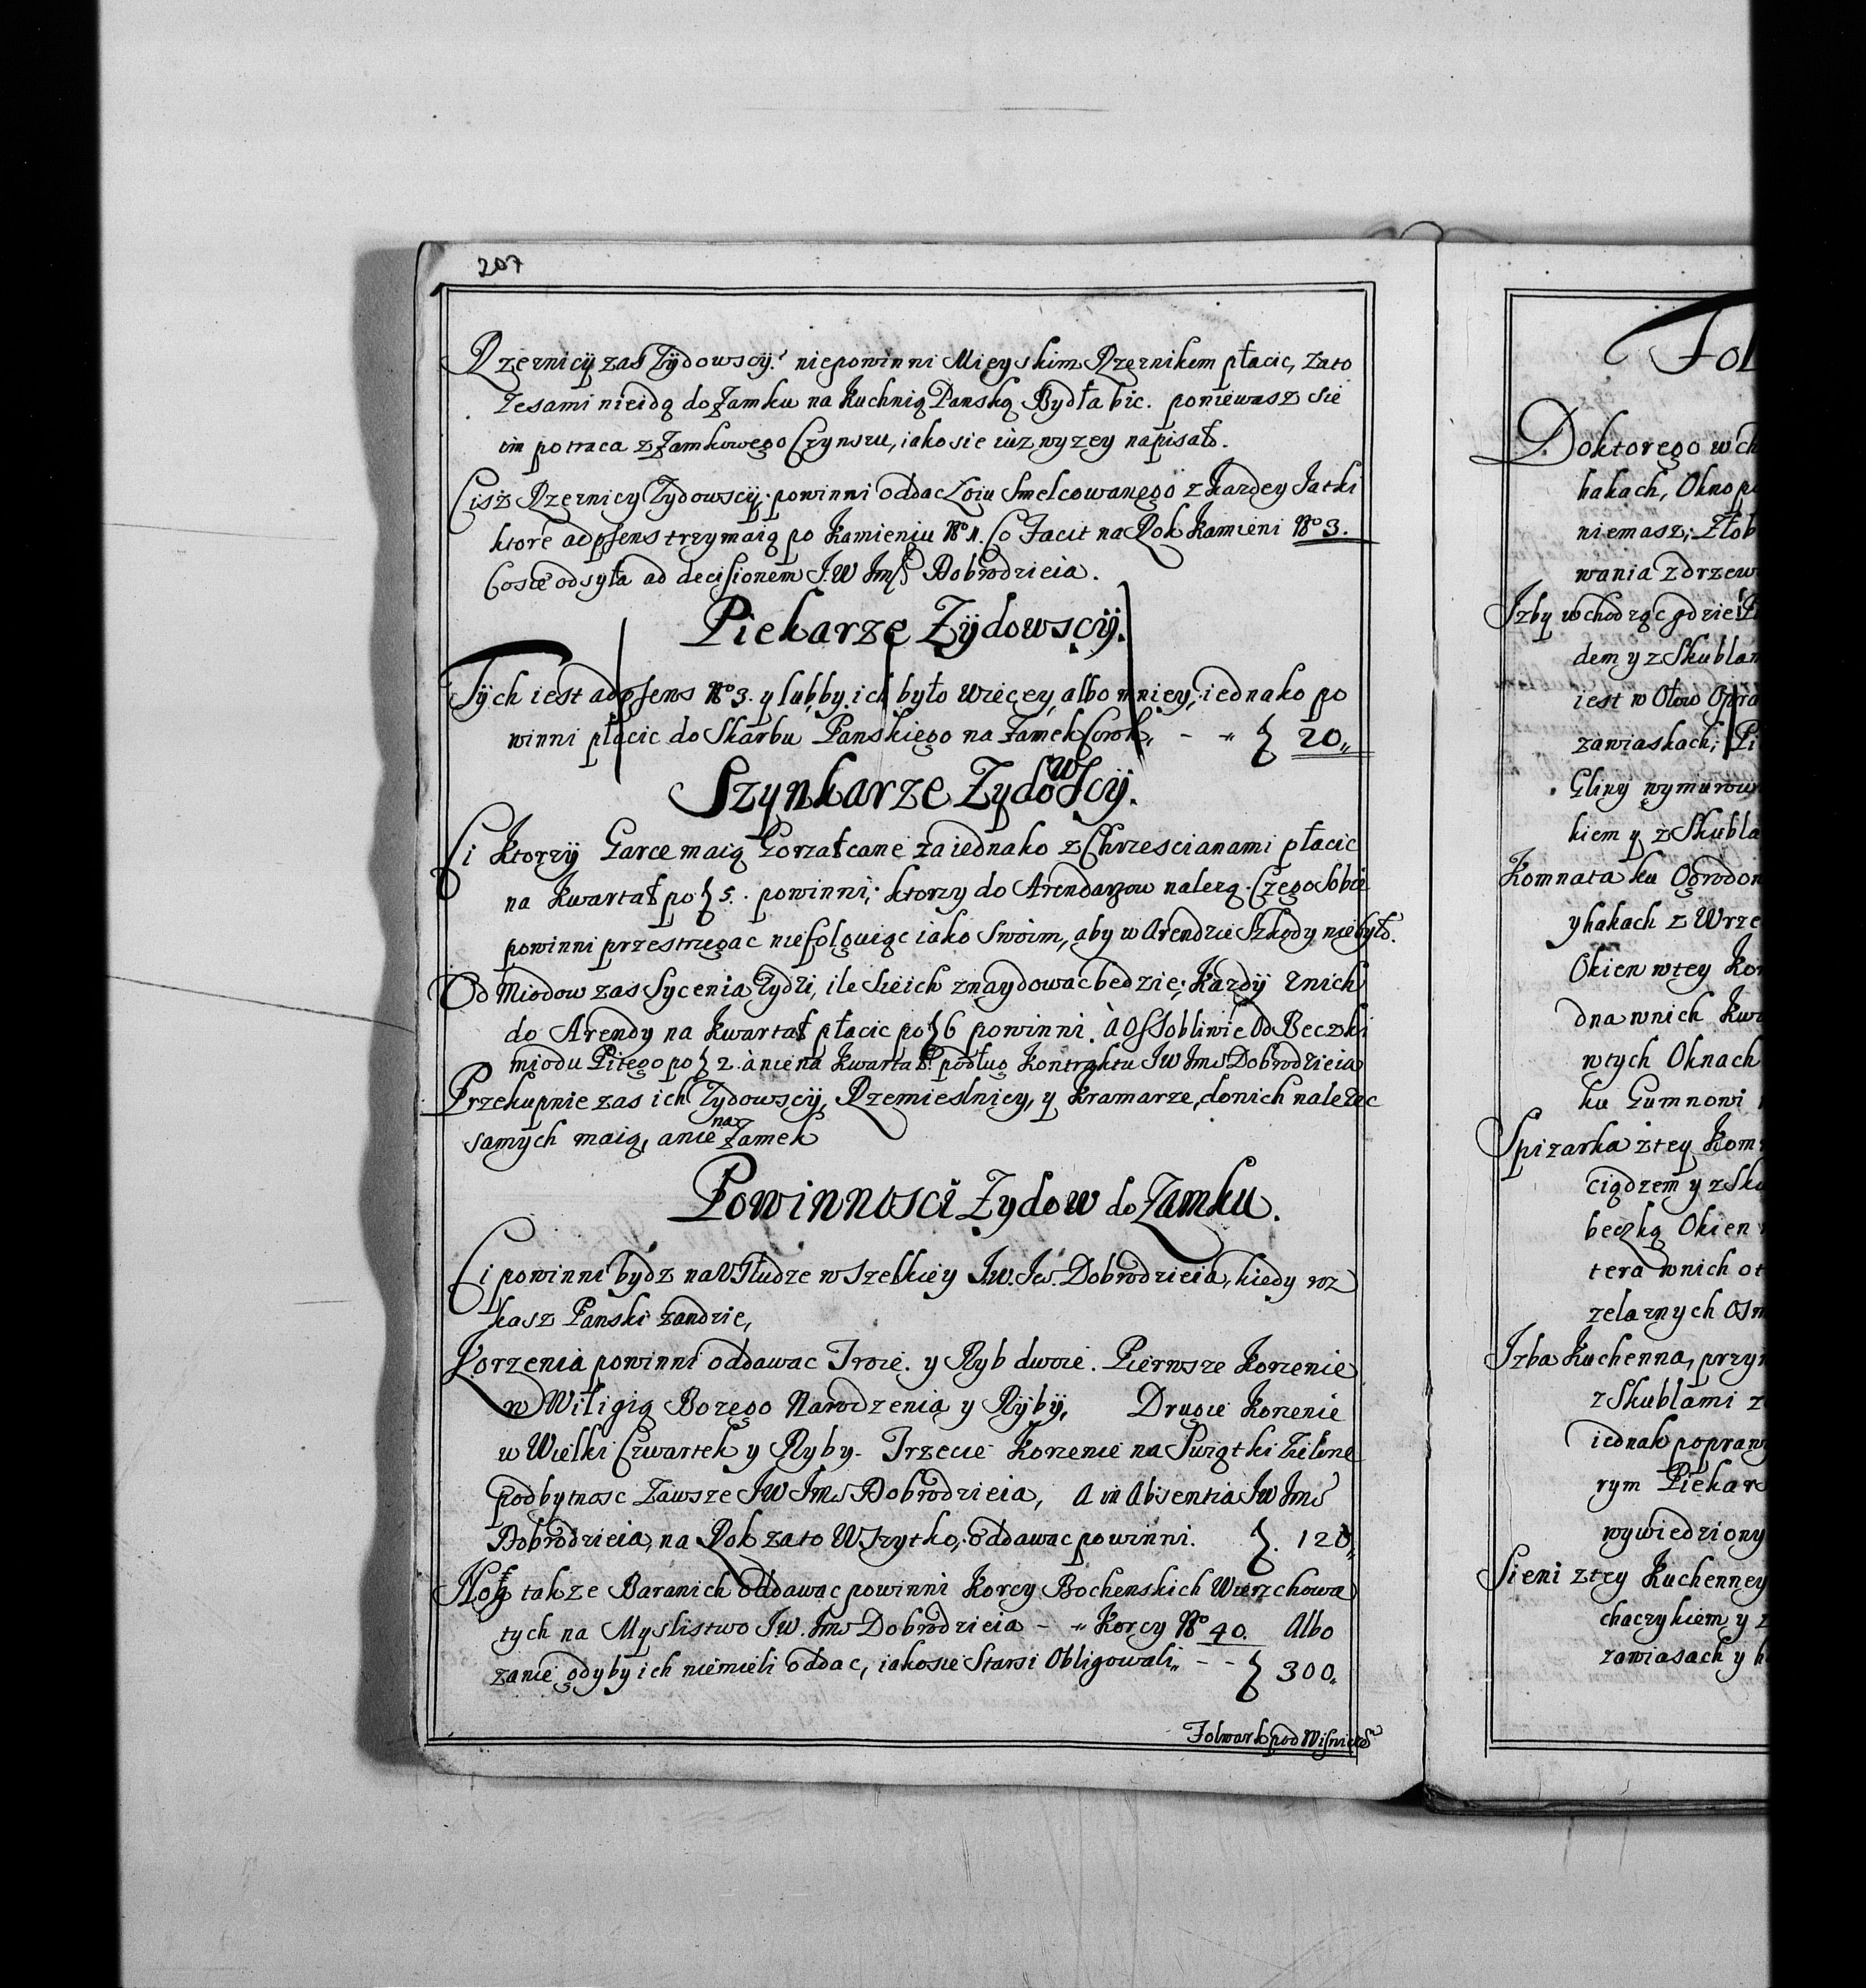 207
Rzeznicy zas Zydowscy niepowinni Mieyskim Rzeznikom płacic, zato
Zesami nieidą do Zamku na Kuchnią Panską Bydła bic. poniewasz sie
im potraca z Zamkowego Czynszu, iakosie iuz wyzey napisało.
Cisz Rzeznicy Zydowscy powinni oddac Łoiu Smelcowanego z kazdey Iatki
ktore adpsens trzymaią po Kamieniu No 1. Co Facit na Rok kamieni No 3.
Cosie odsyła ad decisionem J.W Jmsci Dobrodzieia.
Piekarze Zydowscy.
Tych iest adpsens No 3. y lubby ich było wiecey, albo mniey, iednako po
winni płacic do Skarbu Panskiego na Zamek Corok, - - 20,,
Szynkarze Zydowscy.
Ci Ktorzy Garce maią Gorzałcane zaiednako z Chrzescianami płacic
na Kwartał po 5. powinni; ktorzy do Arendarzow nalezą. Czego Sobie
powinni przestrzegac niefolguiąc iako Swoim, aby w Arendzie Szkody niebyło.
Od Miodow zas Sycenia Zydzi, ile sieich znaydowac bedzie; Kazdy znich
do Arendy na Kwartał płacic po 6 powinni. à Ossobliwie Od Beczki
miodu Pitego po 2. à niena Kwartał. podług Kontraktu JW Jms Dobrodzieia
Przekupnie zas ich Zydowscy, Rzemieslnicy, y Kramarze, donich nalezec
samych maią, anie na Zamek
Powinnosci Zydow do Zamku.
Ci powinni bydz na Usłudze wszelkiey Jw. Js. Dobrodzieia, kiedy roz
kasz Panski zandzie,
Korzenia powinni oddawac Troie. y Ryb dwoie. Pierwsze Korzenie
w Wiligią Bozego Narodzenia y Ryby, Drugie Korzenie
w Wielki Czwartek y Ryby. Trzecie Korzenie na Swiątki Zielone
podbytnosc Zawsze JW Jms Dobrodzieia, A in Absentia Jw Jms
Dobrodzieia, na Rok zato Wszytko, oddawac powinni. 120,,
takze Baranich oddawac powinni Korcy Bochenskich Wierzchowa
tych na Myslistwo Jw. Jms Dobrodzieia - - Korcy No 40. Albo
zanie gdyby ich niemieli oddac, iakosie Starsi Obligowali,, - - 300,,
Folwark pod Wisniczem
Fol
Doktorego wch
hakach, Okno po
niemasz; Złob
wania z drzew
Izby wchodząc gdzie
dem y z Skublam
iest w Ołow Opra
zawiaskach; Pi
Gliny wymurow
kiem y z Skubla
Komnata ku Ogrodow
y hakach z Wrze
Okien wtey Kom
dna wnich Kwa
wtych Oknach
ku Gumnowi
Spizarka ztey Kom
ciądzem y z Sku
beczką Okien
tera wnich ot
zelaznych Osm
Izba Kuchenna, przy
z Skublami z
iednak popraw
rym Piekars
wywiedziony
Sieni ztey Kuchenney
chaczykiem y z
zawiasach y h